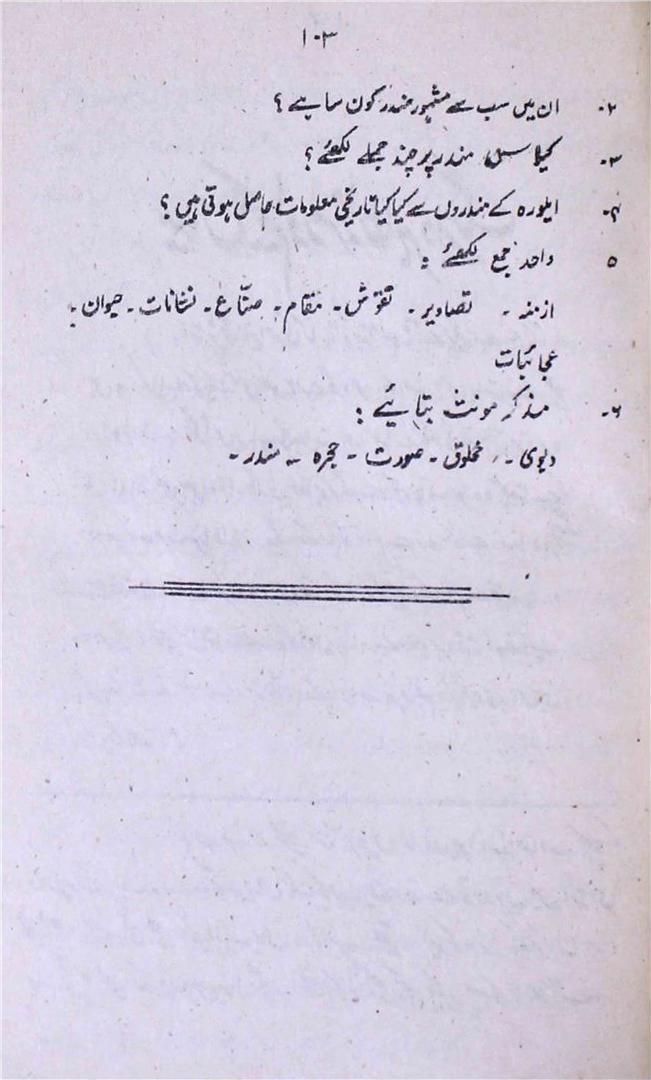 ۱۰۳
۲۔ ان میں سب سے مشہور مندر کون سا ہے ؟
۳۔ کیلاس مندر پر چند جملے لکھئے ؟
۴۔ ایلورہ کے مندروں سے کیا کیا تاریخی معلومات حاصل ہوتی ہیں ؟
۵ واحد جمع لکھئے :
ازمنہ ۔ تصاویر ۔ نقوش ۔ مقام ۔ صنّاع ۔ نشانات ۔ حیوان ۔
عجائبات
۶۔ مذکر مونث بتائیے :
دیوی ۔ مخلوق ۔ صورت ۔ حجرہ ۔ مندر ۔